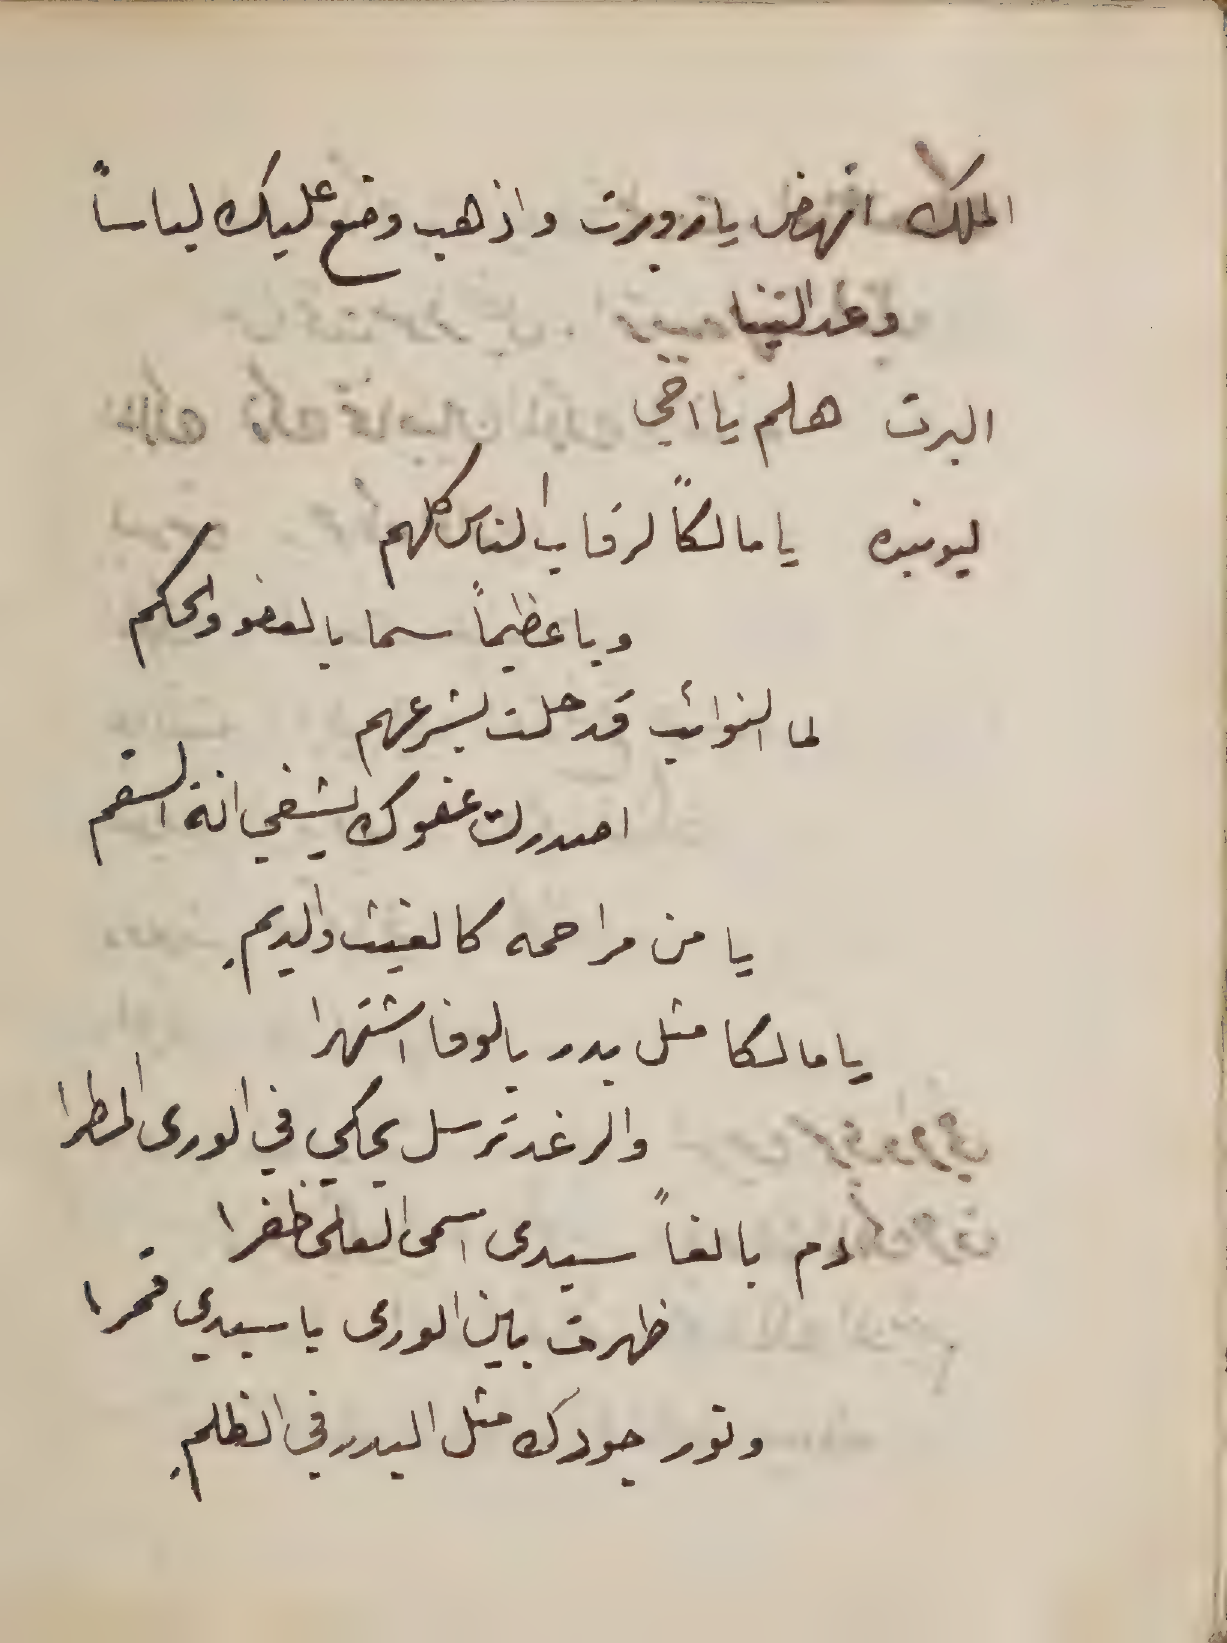 الملك انهض يا روبرت واذهب وضع عليك لباساً
وعد الينا
البرت هلم يا اخي
ليونيده يا مالكاً لرقاب الناس كلهم
ويا عظيماً سما بالعفو والحكم
لما النوائب قد حلت بشرعهم
اصدرت عفوك يشفي انة السقم
يا من مراحمه كالغيث والديم
يا مالكا مثل بدر بالوفا اشتهرا
والرغد ترسل يحكي في الورى المطرا
دم بالغاً سيدى اسمى العلى ظفرا
ظهرت بين الورى يا سيدي قمرا
ونور جودك مثل البدر في الظلم